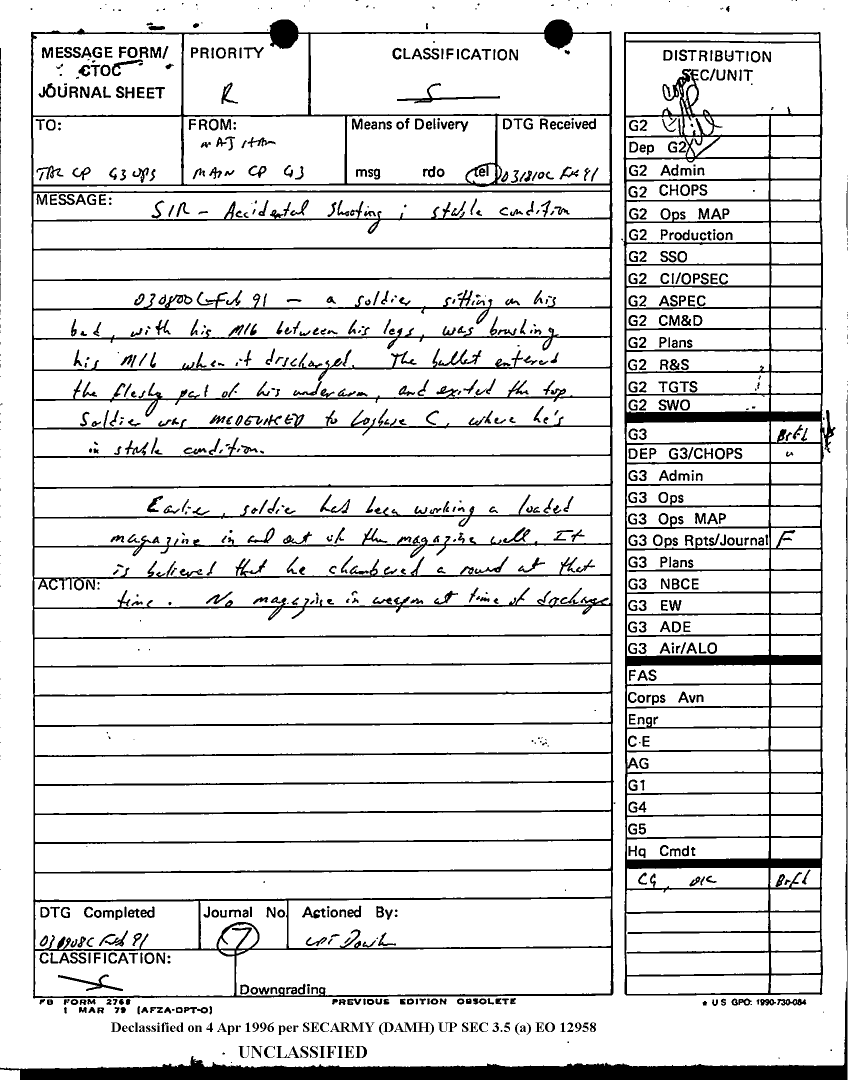 MESSAGE FORM/
CTOC
JOURNAL SHEET
PRIORITY
R
CLASSIFICATION
S
TO:
TAC CP G3 OPS
FROM:
MAJ
MAIN CP G3
Means of Delivery
msg rdo tel
DTG Received
031810C Feb 91
MESSAGE:
SIR - Accidental Shooting ; stable condition
030800C Feb 91 - a soldier, sitting on his
bed, with his M16 between his legs, was brushing
his M16 when it discharged. The bullet entered
the fleshy part of his underarm, and exited the top.
Soldier was MEDEVACED to Logbase C, where he's
in stable condition.
Earlier, soldier had been working a loaded
magazine in and out of the magazine well. It
is believed that he chambered a round at that
ACTION:
time. No magazine in weapon at time of discharge
DTG Completed
Feb 91
Journal No.
7
Actioned By:
CPT
CLASSIFICATION:
S
Downgrading
FB FORM 2768
1 MAR 79 (AFZA-DPT-O)
PREVIOUS EDITION OBSOLETE
DISTRIBUTION
SEC/UNIT
Copy
File
G2
Dep G2
G2 Admin
G2 CHOPS
G2 Ops MAP
G2 Production
G2 SSO
G2 CI/OPSEC
G2 ASPEC
G2 CM&D
G2 Plans
G2 R&S
G2 TGTS
G2 SWO
G3 Brfd
DEP G3/CHOPS "
G3 Admin
G3 Ops
G3 Ops MAP
G3 Ops Rpts/Journal F
G3 Plans
G3 NBCE
G3 EW
G3 ADE
G3 Air/ALO
FAS
Corps Avn
Engr
C-E
AG
G1
G4
G5
Hq Cmdt
CG, Brfd
★ U S GPO: 1990-730-084
Declassified on 4 Apr 1996 per SECARMY (DAMH) UP SEC 3.5 (a) EO 12958
UNCLASSIFIED